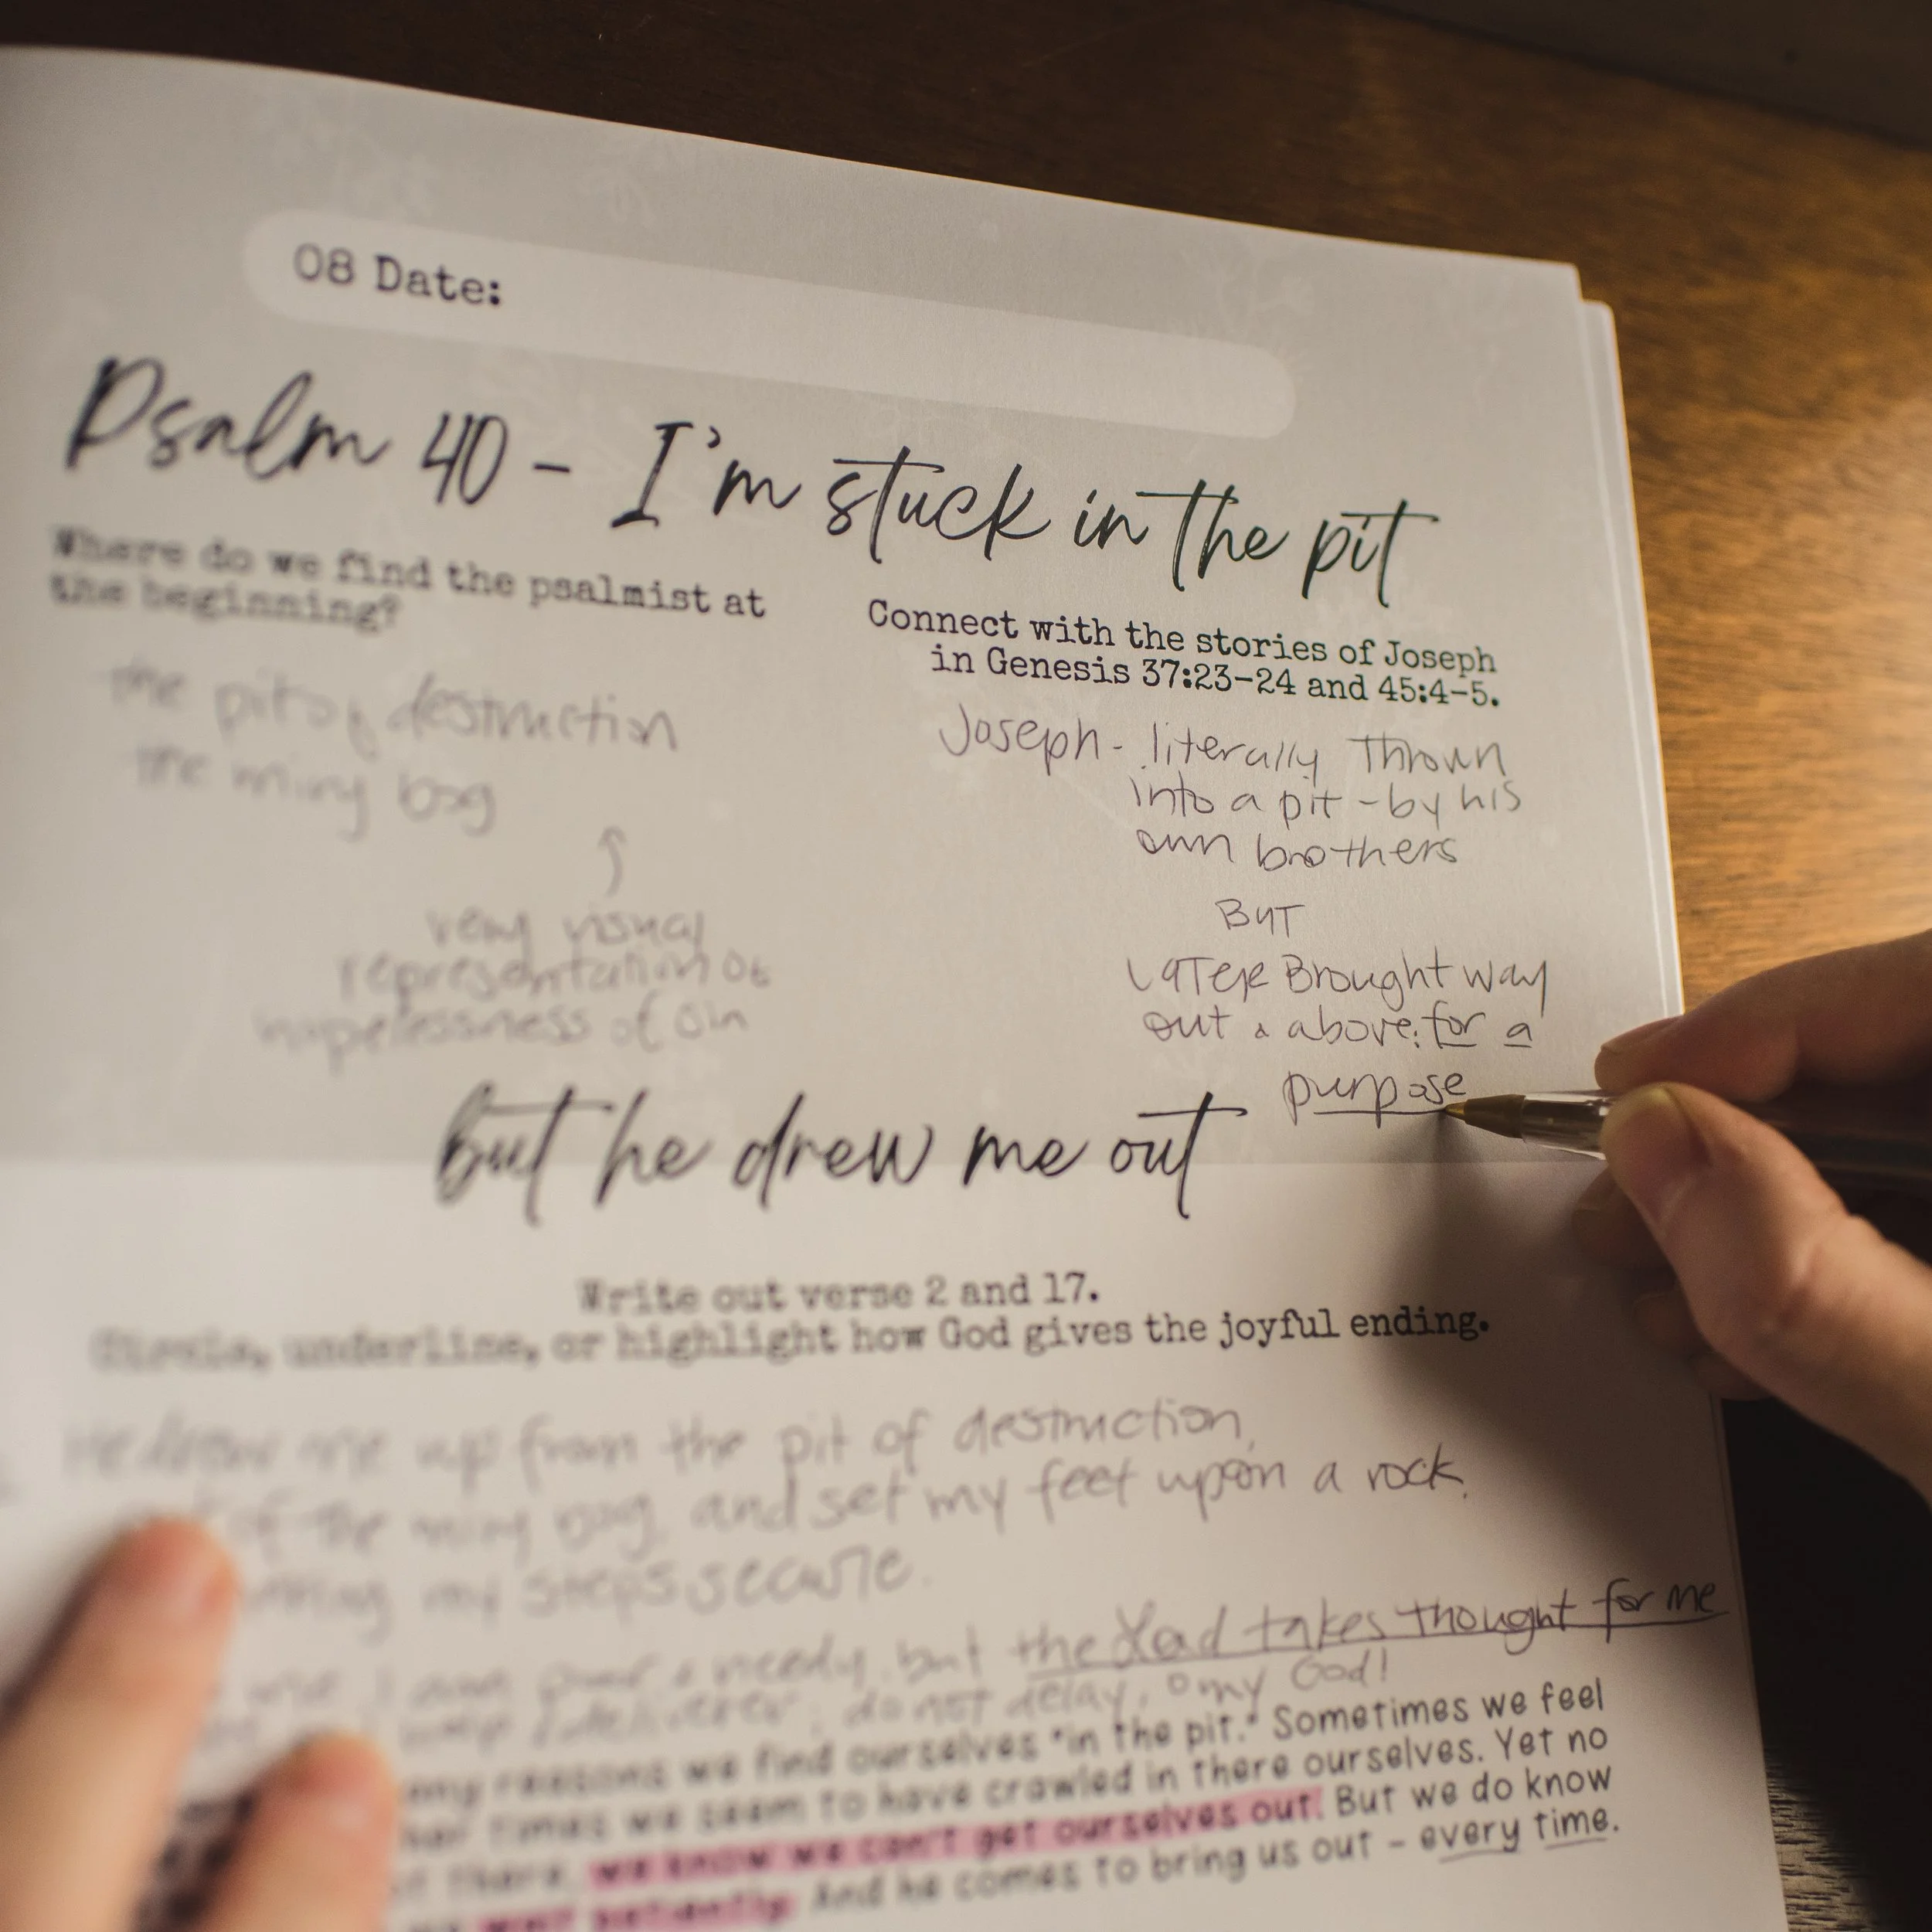 08 Date:
Psalm 40 - I'm stuck in the pit
Where do we find the psalmist at
the beginning?
the pit of destruction
the miry bog
very visual
representation of
hopelessness of sin
Connect with the stories of Joseph
in Genesis 37:23-24 and 45:4-5.
Joseph - literally Thrown
into a pit - by his
own brothers
BUT
LATER Brought way
out & above: for a
purpose
but he drew me out
Write out verse 2 and 17.
Circle, underline, or highlight how God gives the joyful ending.
He drew me up from the pit of destruction,
of the miry bog, and set my feet upon a rock,
my steps secure.
I am poor & needy, but the Lord takes thought for me
deliverer; do not delay, o my God!
reasons we find ourselves "in the pit." Sometimes we feel
times we seem to have crawled in there ourselves. Yet no
there, we know we can't get ourselves out. But we do know
wait patiently. And he comes to bring us out - every time.